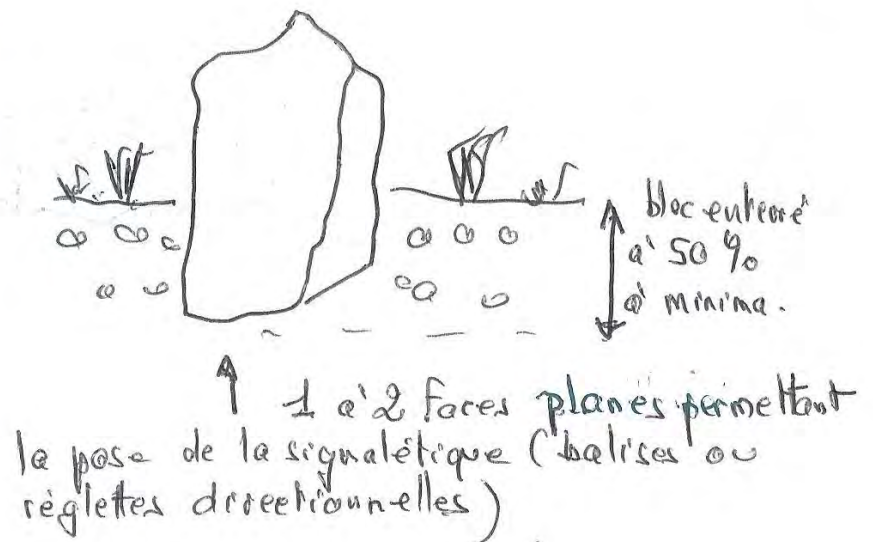 bloc enterré
à 50 %
à minima.
1 à 2 faces planes permettant
la pose de la signalétique (balises ou
règlettes directionnelles)